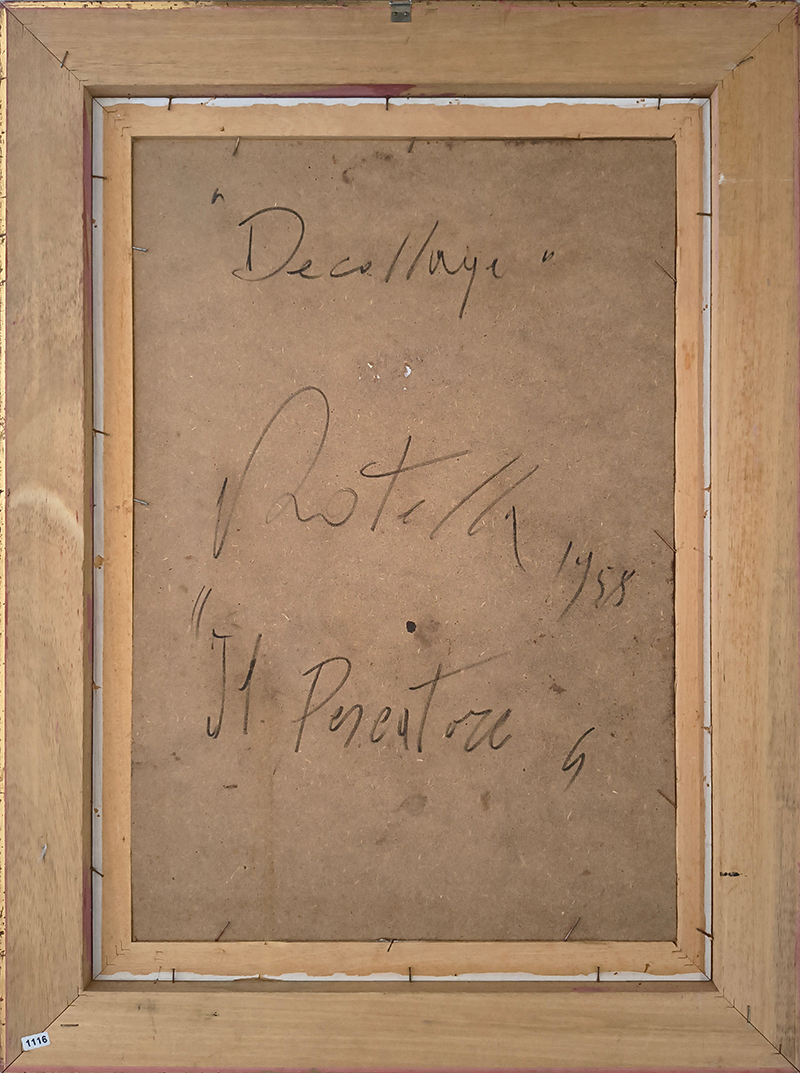 "Decollage"
Rotella
1958
"Il Pescatore"
1116